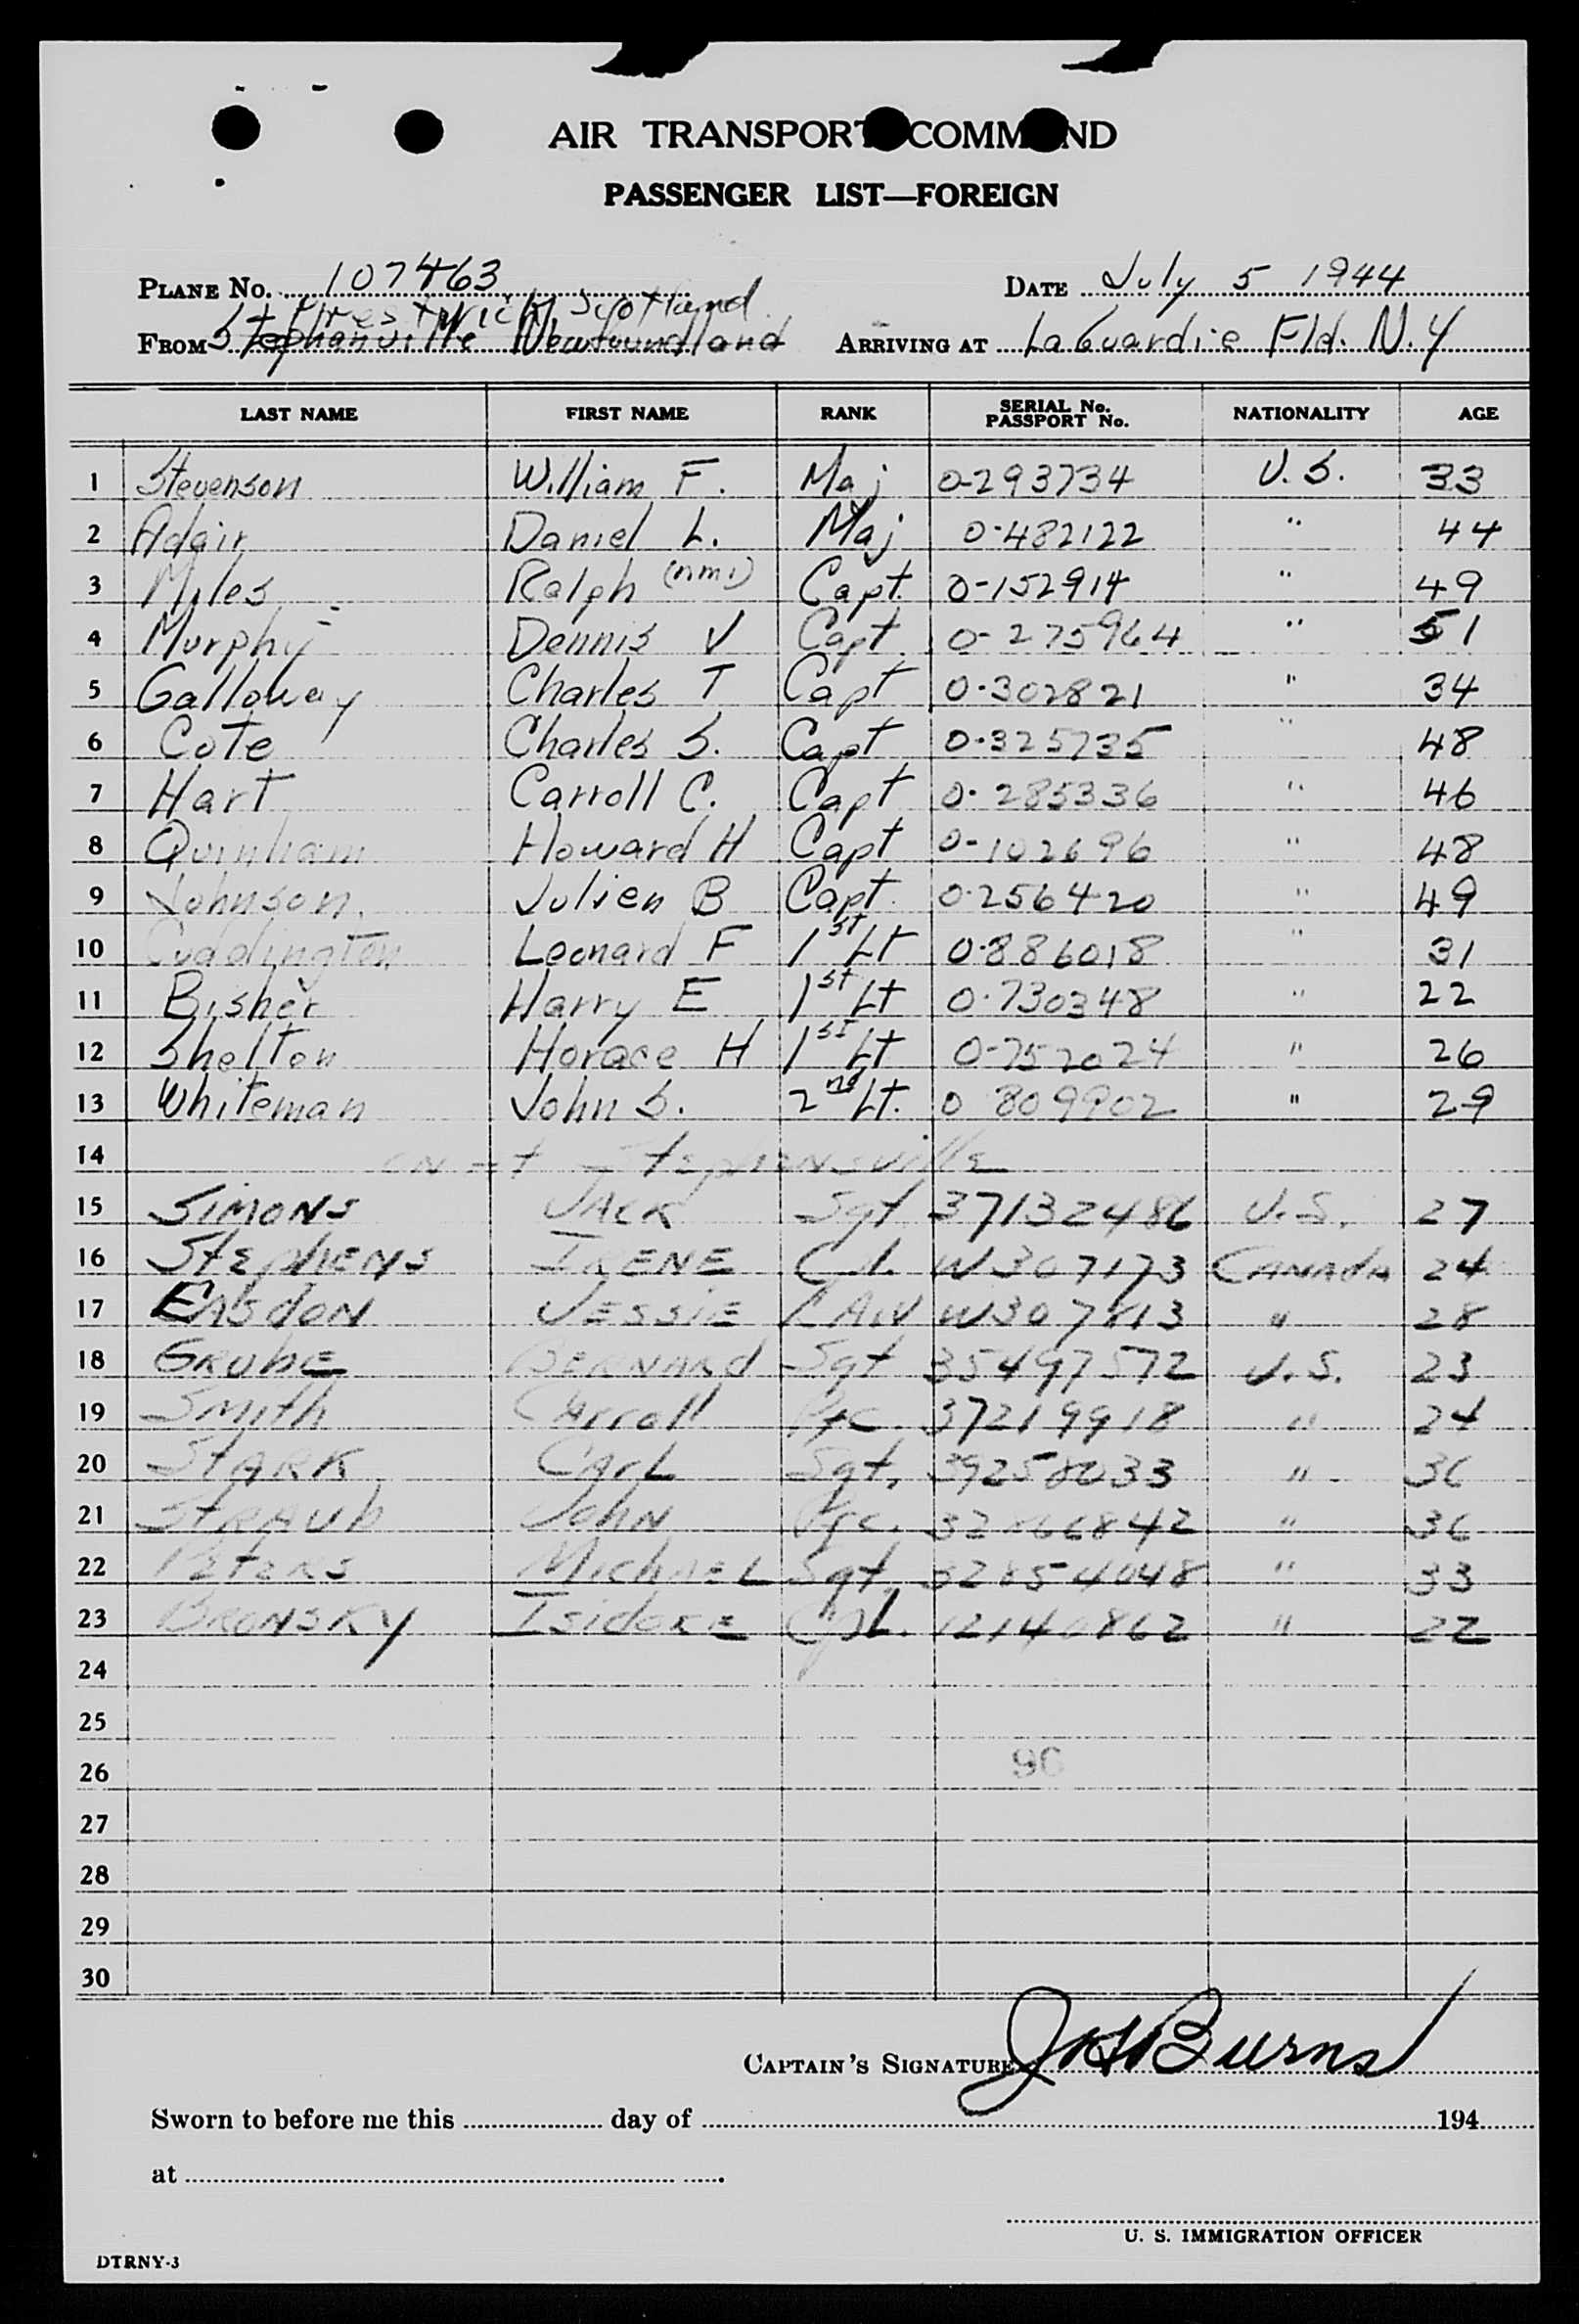 AIR TRANSPORT COMMAND
PASSENGER LIST—FOREIGN
PLANE No. 107463 DATE July 5 1944
Prestwick, Scotland
FROM Stephanville Newfoundland ARRIVING AT LaGuardia Fld. N.Y
LAST NAME FIRST NAME RANK SERIAL No. PASSPORT No. NATIONALITY AGE
1 Stevenson William F. Maj 0-293734 U.S. 33
2 Adair Daniel L. Maj 0-482122 " 44
3 Myles Ralph (nmi) Capt. 0-152914 " 49
4 Murphy Dennis V Capt. 0-275964 " 51
5 Galloway Charles T Capt 0-302821 " 34
6 Cote Charles S. Capt 0-325735 " 48
7 Hart Carroll C. Capt 0-285336 " 46
8 Howard H Capt 0-102696 " 48
9 Johnson Julien B Capt. 0-256420 " 49
10 Cuddington Leonard F 1st Lt 0-886018 " 31
11 Bisher Harry E 1st Lt 0-730348 " 22
12 Shelton Horace H 1st Lt 0-752024 " 26
13 Whiteman John S. 2nd Lt. 0 809902 " 29
14 ON at Stephensville
15 SIMONS JACK Sgt 37132486 U.S. 27
16 StEphENS IRENE Cpl. W307173 CANAdA 24
17 EASdON JESSIE LAW W307813 " 28
18 GRUbE BERNARd Sgt 35497572 U.S. 23
19 Smith Carroll Pfc 37219918 " 24
20 StARK CArL Sgt. 39258033 " 36
21 StRAUb JOhN Pfc. " 36
22 PEtERS MichAEL Sgt 32854048 " 33
23 BRONSKY IsidoRE CpL. 12140862 " 22
24
25
26 96
27
28
29
30
CAPTAIN'S SIGNATURE J H Burns
Sworn to before me this day of 194
at .
U. S. IMMIGRATION OFFICER
DTRNY-3